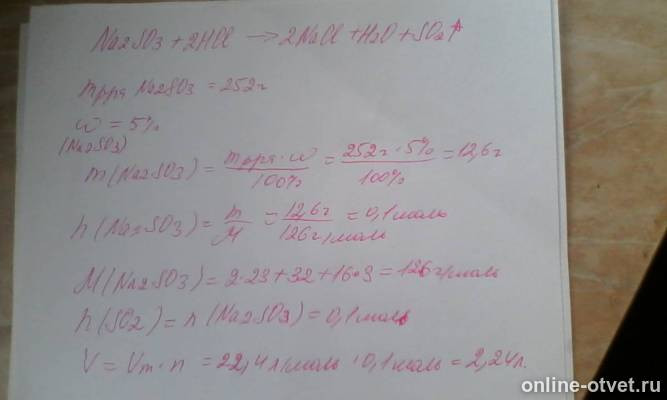 Na2SO3 + 2HCl → 2NaCl + H2O + SO2↑
mр-ра Na2SO3 = 252г
ω = 5%
(Na2SO3)
m(Na2SO3) = mр-ра · ω / 100% = 252г · 5% / 100% = 12,6г
n(Na2SO3) = m / M = 12,6г / 126г/моль = 0,1моль
M(Na2SO3) = 2·23+32+16·3 = 126г/моль
n(SO2) = n(Na2SO3) = 0,1моль
V = Vm · n = 22,4л/моль · 0,1моль = 2,24л.
online-otvet.ru